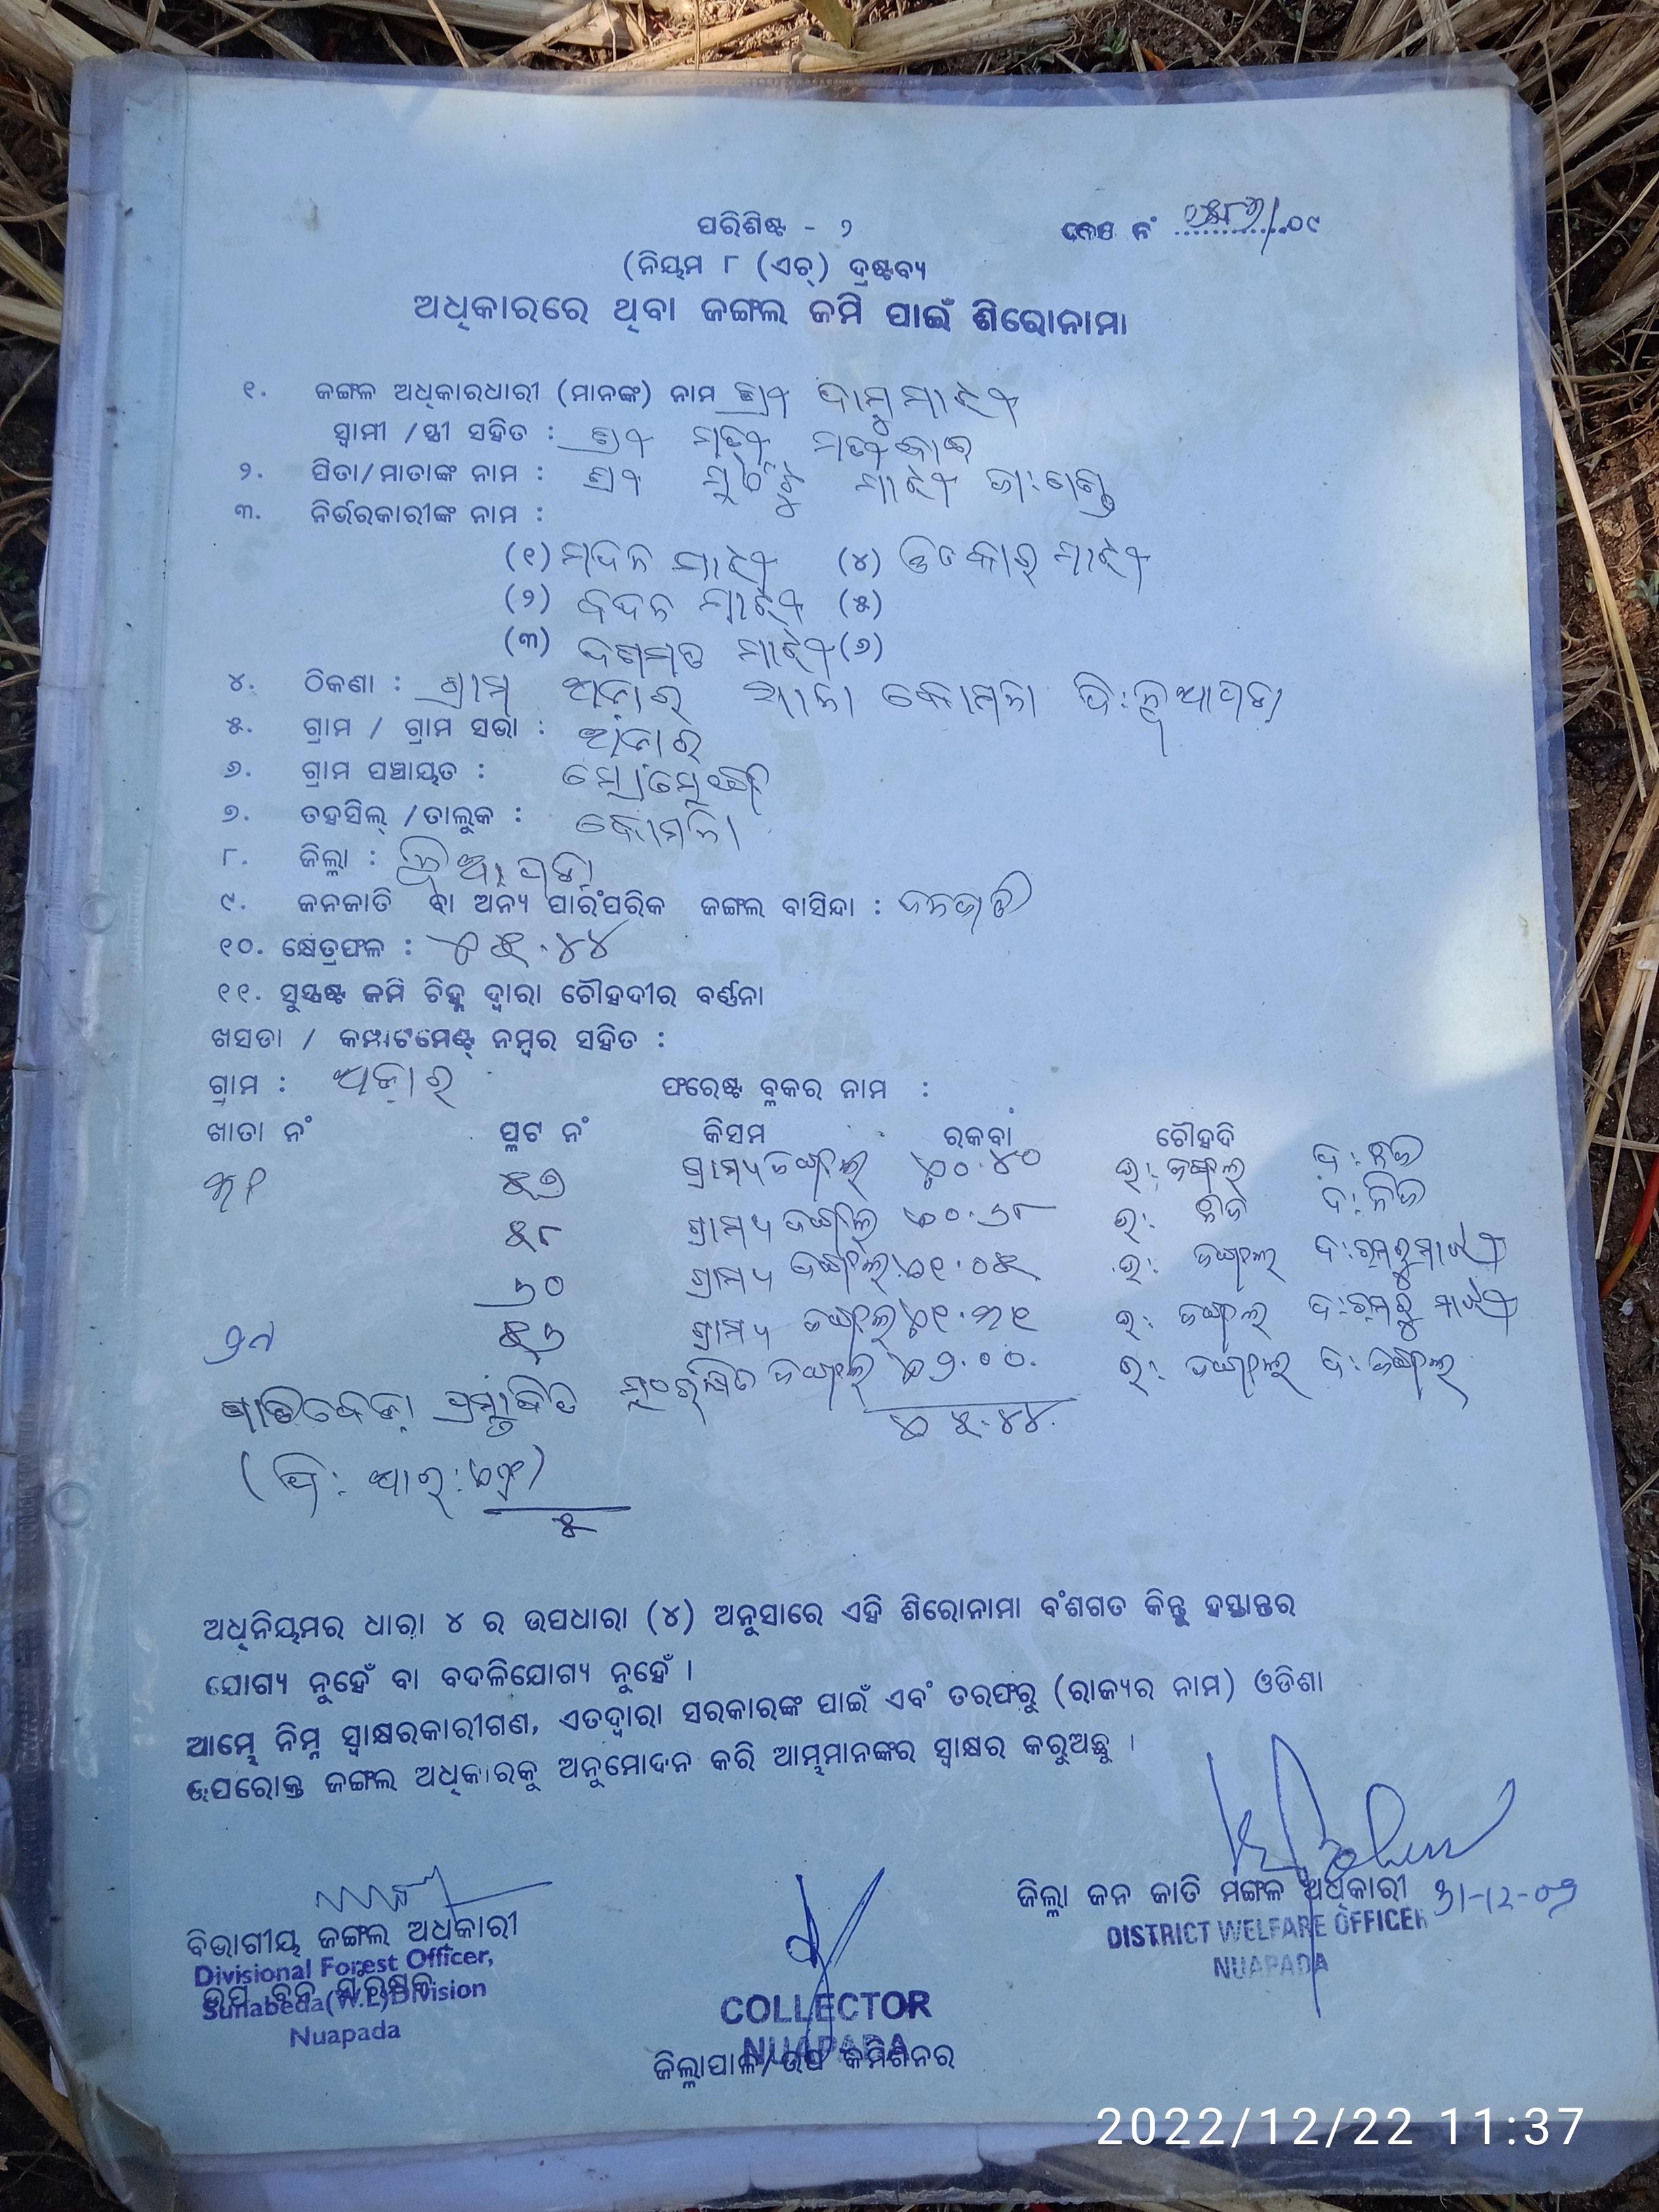 ପରିଶିଷ୍ଟ - ୨
କେସ ନଂ /୦୯
(ନିୟମ ୮ (ଏଚ୍) ଦ୍ରଷ୍ଟବ୍ୟ
ଅଧିକାରରେ ଥିବା ଜଙ୍ଗଲ ଜମି ପାଇଁ ଶିରୋନାମା
୧. ଜଙ୍ଗଲ ଅଧିକାରଧାରୀ (ମାନଙ୍କ) ନାମ ଶ୍ରୀ ଦାମୁ ମାଝୀ
ସ୍ୱାମୀ /ସ୍ତ୍ରୀ ସହିତ :
୨. ପିତା/ମାତାଙ୍କ ନାମ : ମାଝୀ ଜା: ଗଣ୍ଡ
୩. ନିର୍ଭରକାରୀଙ୍କ ନାମ :
(୧) ମଦନ ମାଝୀ (୪) ମାଝୀ
(୨) ବଦନ ମାଝୀ (୫)
(୩) ଦଶମତ ମାଝୀ (୬)
୪. ଠିକଣା : ଗ୍ରାମ ଥାନା କୋମନା ଜି: ନୂଆପଡ଼ା
୫. ଗ୍ରାମ / ଗ୍ରାମ ସଭା :
୬. ଗ୍ରାମ ପଞ୍ଚାୟତ :
୭. ତହସିଲ୍ /ତାଲୁକ : କୋମନା
୮. ଜିଲ୍ଲା : ନୂଆପଡ଼ା
୯. ଜନଜାତି ବା ଅନ୍ୟ ପାରଂପରିକ ଜଙ୍ଗଲ ବାସିନ୍ଦା : ଜନଜାତି
୧୦. କ୍ଷେତ୍ରଫଳ : ୫.୪୪
୧୧. ସୁସ୍ପଷ୍ଟ ଜମି ଚିହ୍ନ ଦ୍ୱାରା ଚୌହଦୀର ବର୍ଣ୍ଣନା
ଖସଡା / କମ୍ପାଟମେଣ୍ଟ୍ ନମ୍ବର ସହିତ :
ଗ୍ରାମ : ଫରେଷ୍ଟ ବ୍ଲକର ନାମ :
ଖାତା ନଂ ପ୍ଲଟ ନଂ କିସମ ରକବା ଚୌହଦି
୫୭ ଗ୍ରାମ୍ୟ ଜଙ୍ଗଲ ୦.୪୦ ଉ: ଜଙ୍ଗଲ ଦ: ନିଜ
୫୮ ଗ୍ରାମ୍ୟ ଜଙ୍ଗଲ ୦.୬୮ ଉ: ନିଜ ଦ: ନିଜ
୬୦ ଗ୍ରାମ୍ୟ ଜଙ୍ଗଲ ୧.୦୫ ଉ: ଜଙ୍ଗଲ ଦ: ମାଝୀ
୫୬ ଗ୍ରାମ୍ୟ ଜଙ୍ଗଲ ଉ: ଜଙ୍ଗଲ ଦ: ମାଝୀ
ପ୍ରସ୍ତାବିତ ସଂରକ୍ଷିତ ଜଙ୍ଗଲ ୨.୦୦ ଉ: ଜଙ୍ଗଲ ଦ: ଜଙ୍ଗଲ
୫.୪୪
ଅଧିନିୟମର ଧାରା ୪ ର ଉପଧାରା (୪) ଅନୁସାରେ ଏହି ଶିରୋନାମା ବଂଶଗତ କିନ୍ତୁ ହସ୍ତାନ୍ତର
ଯୋଗ୍ୟ ନୁହେଁ ବା ବଦଳିଯୋଗ୍ୟ ନୁହେଁ ।
ଆମ୍ଭେ ନିମ୍ନ ସ୍ୱାକ୍ଷରକାରୀଗଣ, ଏତଦ୍ୱାରା ସରକାରଙ୍କ ପାଇଁ ଏବଂ ତରଫରୁ (ରାଜ୍ୟର ନାମ) ଓଡିଶା
ଉପରୋକ୍ତ ଜଙ୍ଗଲ ଅଧିକାରକୁ ଅନୁମୋଦନ କରି ଆମ୍ଭମାନଙ୍କର ସ୍ୱାକ୍ଷର କରୁଅଛୁ ।
ଜିଲ୍ଲା ଜନ ଜାତି ମଙ୍ଗଳ ଅଧିକାରୀ 31-12-09
DISTRICT WELFARE OFFICER
NUAPADA
ବିଭାଗୀୟ ଜଙ୍ଗଲ ଅଧିକାରୀ
Divisional Forest Officer,
ଉପ ବନ ସଂରକ୍ଷକ
Sunabeda(W.L)Division
Nuapada
COLLECTOR
NUAPADA
ଜିଲ୍ଲାପାଳ/ଉପ କମିଶନର
2022/12/22 11:37